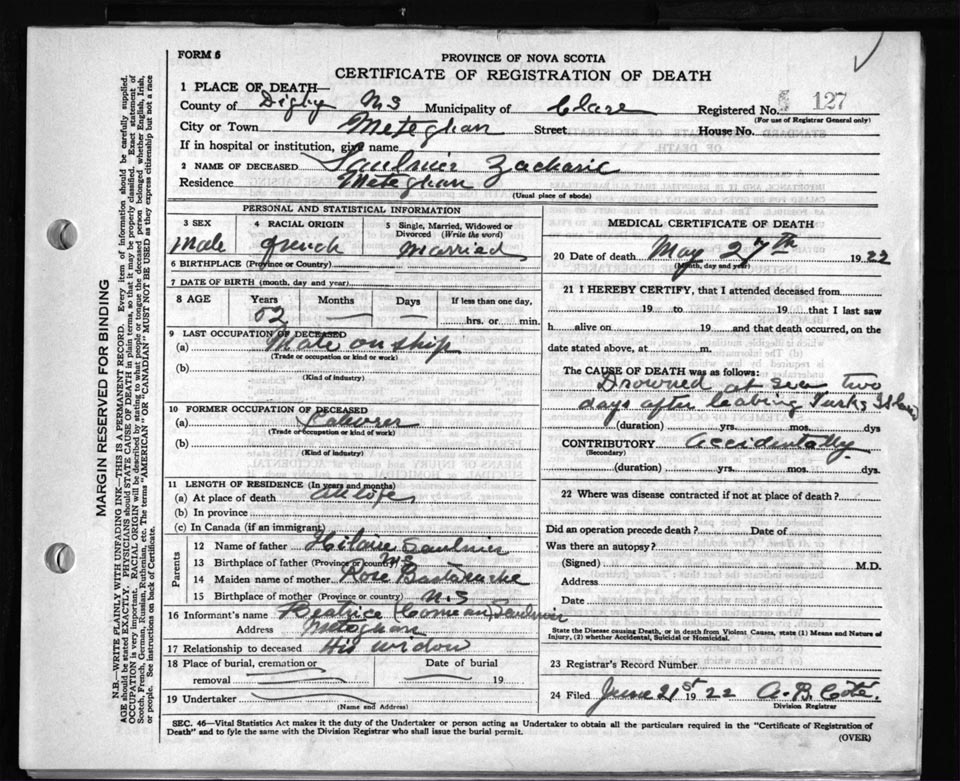 FORM 6
PROVINCE OF NOVA SCOTIA
CERTIFICATE OF REGISTRATION OF DEATH
1 PLACE OF DEATH—
County of Digby N S Municipality of Clare Registered No. 127
(For use of Registrar General only)
City or Town Meteghan Street House No.
If in hospital or institution, give name
2 NAME OF DECEASED Saulnier Zacharie
Residence Meteghan
(Usual place of abode)
PERSONAL AND STATISTICAL INFORMATION
3 SEX 4 RACIAL ORIGIN 5 Single, Married, Widowed or Divorced (Write the word)
Male French Married
6 BIRTHPLACE (Province or Country)
7 DATE OF BIRTH (month, day and year)
8 AGE Years Months Days If less than one day,
52 hrs. or min.
9 LAST OCCUPATION OF DECEASED
(a) Mate on ship
(Trade or occupation or kind of work)
(b)
(Kind of industry)
10 FORMER OCCUPATION OF DECEASED
(a) Labourer
(Trade or occupation or kind of work)
(b)
(Kind of industry)
11 LENGTH OF RESIDENCE (In years and months)
(a) At place of death All life
(b) In province
(c) In Canada (if an immigrant)
Parents
12 Name of father Hilaire Saulnier
13 Birthplace of father (Province or country) N S
14 Maiden name of mother Rose Bastarache
15 Birthplace of mother (Province or country) N.S
16 Informant's name Beatrice (Comeau) Saulnier
Address Meteghan
17 Relationship to deceased His widow
18 Place of burial, cremation or removal Date of burial 19
19 Undertaker
(Name and Address)
MEDICAL CERTIFICATE OF DEATH
20 Date of death May 27th 1922
(Month, day and year)
21 I HEREBY CERTIFY, that I attended deceased from
19 to 19 that I last saw
h alive on 19 and that death occurred, on the
date stated above, at m.
The CAUSE OF DEATH was as follows:
Drowned at sea two
days after leaving Turks Island
(duration) yrs. mos. dys
CONTRIBUTORY Accidentally
(Secondary)
(duration) yrs. mos. dys.
22 Where was disease contracted if not at place of death?
Did an operation precede death? Date of
Was there an autopsy?
(Signed) M.D.
Address
Date
State the Disease causing Death, or in death from Violent Causes, state (1) Means and Nature of
Injury, (2) whether Accidental, Suicidal or Homicidal.
23 Registrar's Record Number
24 Filed June 21st 1922 A. B. Coté.
Division Registrar
SEC. 46—Vital Statistics Act makes it the duty of the Undertaker or person acting as Undertaker to obtain all the particulars required in the "Certificate of Registration of
Death" and to fyle the same with the Division Registrar who shall issue the burial permit.
(OVER)
MARGIN RESERVED FOR BINDING
N.B.—WRITE PLAINLY WITH UNFADING INK—THIS IS A PERMANENT RECORD. Every item of information should be carefully supplied.
AGE should be stated EXACTLY. PHYSICIANS should STATE CAUSE OF DEATH in plain terms, so that it may be properly classified. Exact statement of
OCCUPATION is very important. RACIAL ORIGIN will be described by stating to what people or tongue the deceased person belonged whether English, Irish,
Scotch, French, German, Russian, Ruthenian, etc. The terms "AMERICAN" or "CANADIAN" MUST NOT BE USED as they express citizenship but not a race
or people. See instructions on back of Certificate.